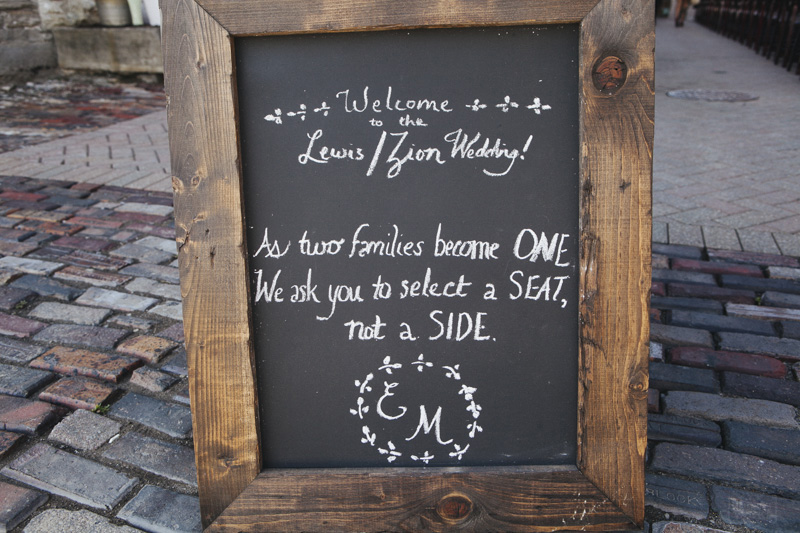 Welcome
to the
Lewis/Zion Wedding!
As two families become ONE
We ask you to select a SEAT,
not a SIDE.
E
M